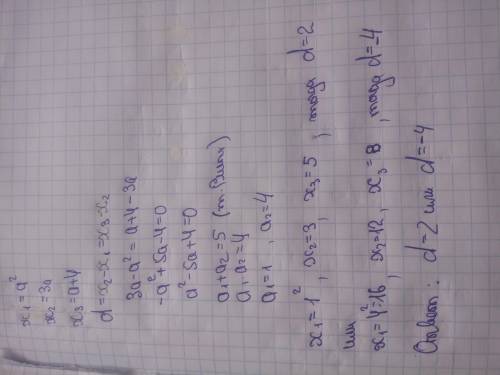 x₁ = a²
x₂ = 3a
x₃ = a+4
d = x₂ - x₁ = x₃ - x₂
3a - a² = a+4 - 3a
-a² + 5a - 4 = 0
a² - 5a + 4 = 0
a₁ + a₂ = 5 (т. Виета)
a₁ · a₂ = 4
a₁ = 1 , a₂ = 4
x₁ = 1² , x₂ = 3 , x₃ = 5 , тогда d = 2
или
x₁ = 4² = 16 , x₂ = 12 , x₃ = 8 , тогда d = -4
Ответ: d = 2 или d = -4